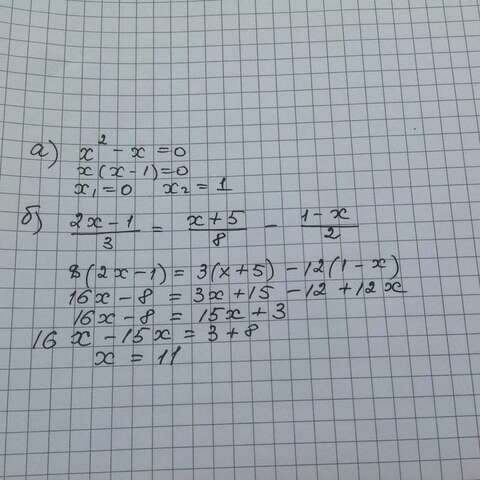 а) x² - x = 0
x(x-1)=0
x₁ = 0 x₂ = 1
б) (2x-1)/3 = (x+5)/8 - (1-x)/2
8(2x-1) = 3(x+5) - 12(1-x)
16x - 8 = 3x + 15 - 12 + 12x
16x - 8 = 15x + 3
16x - 15x = 3 + 8
x = 11